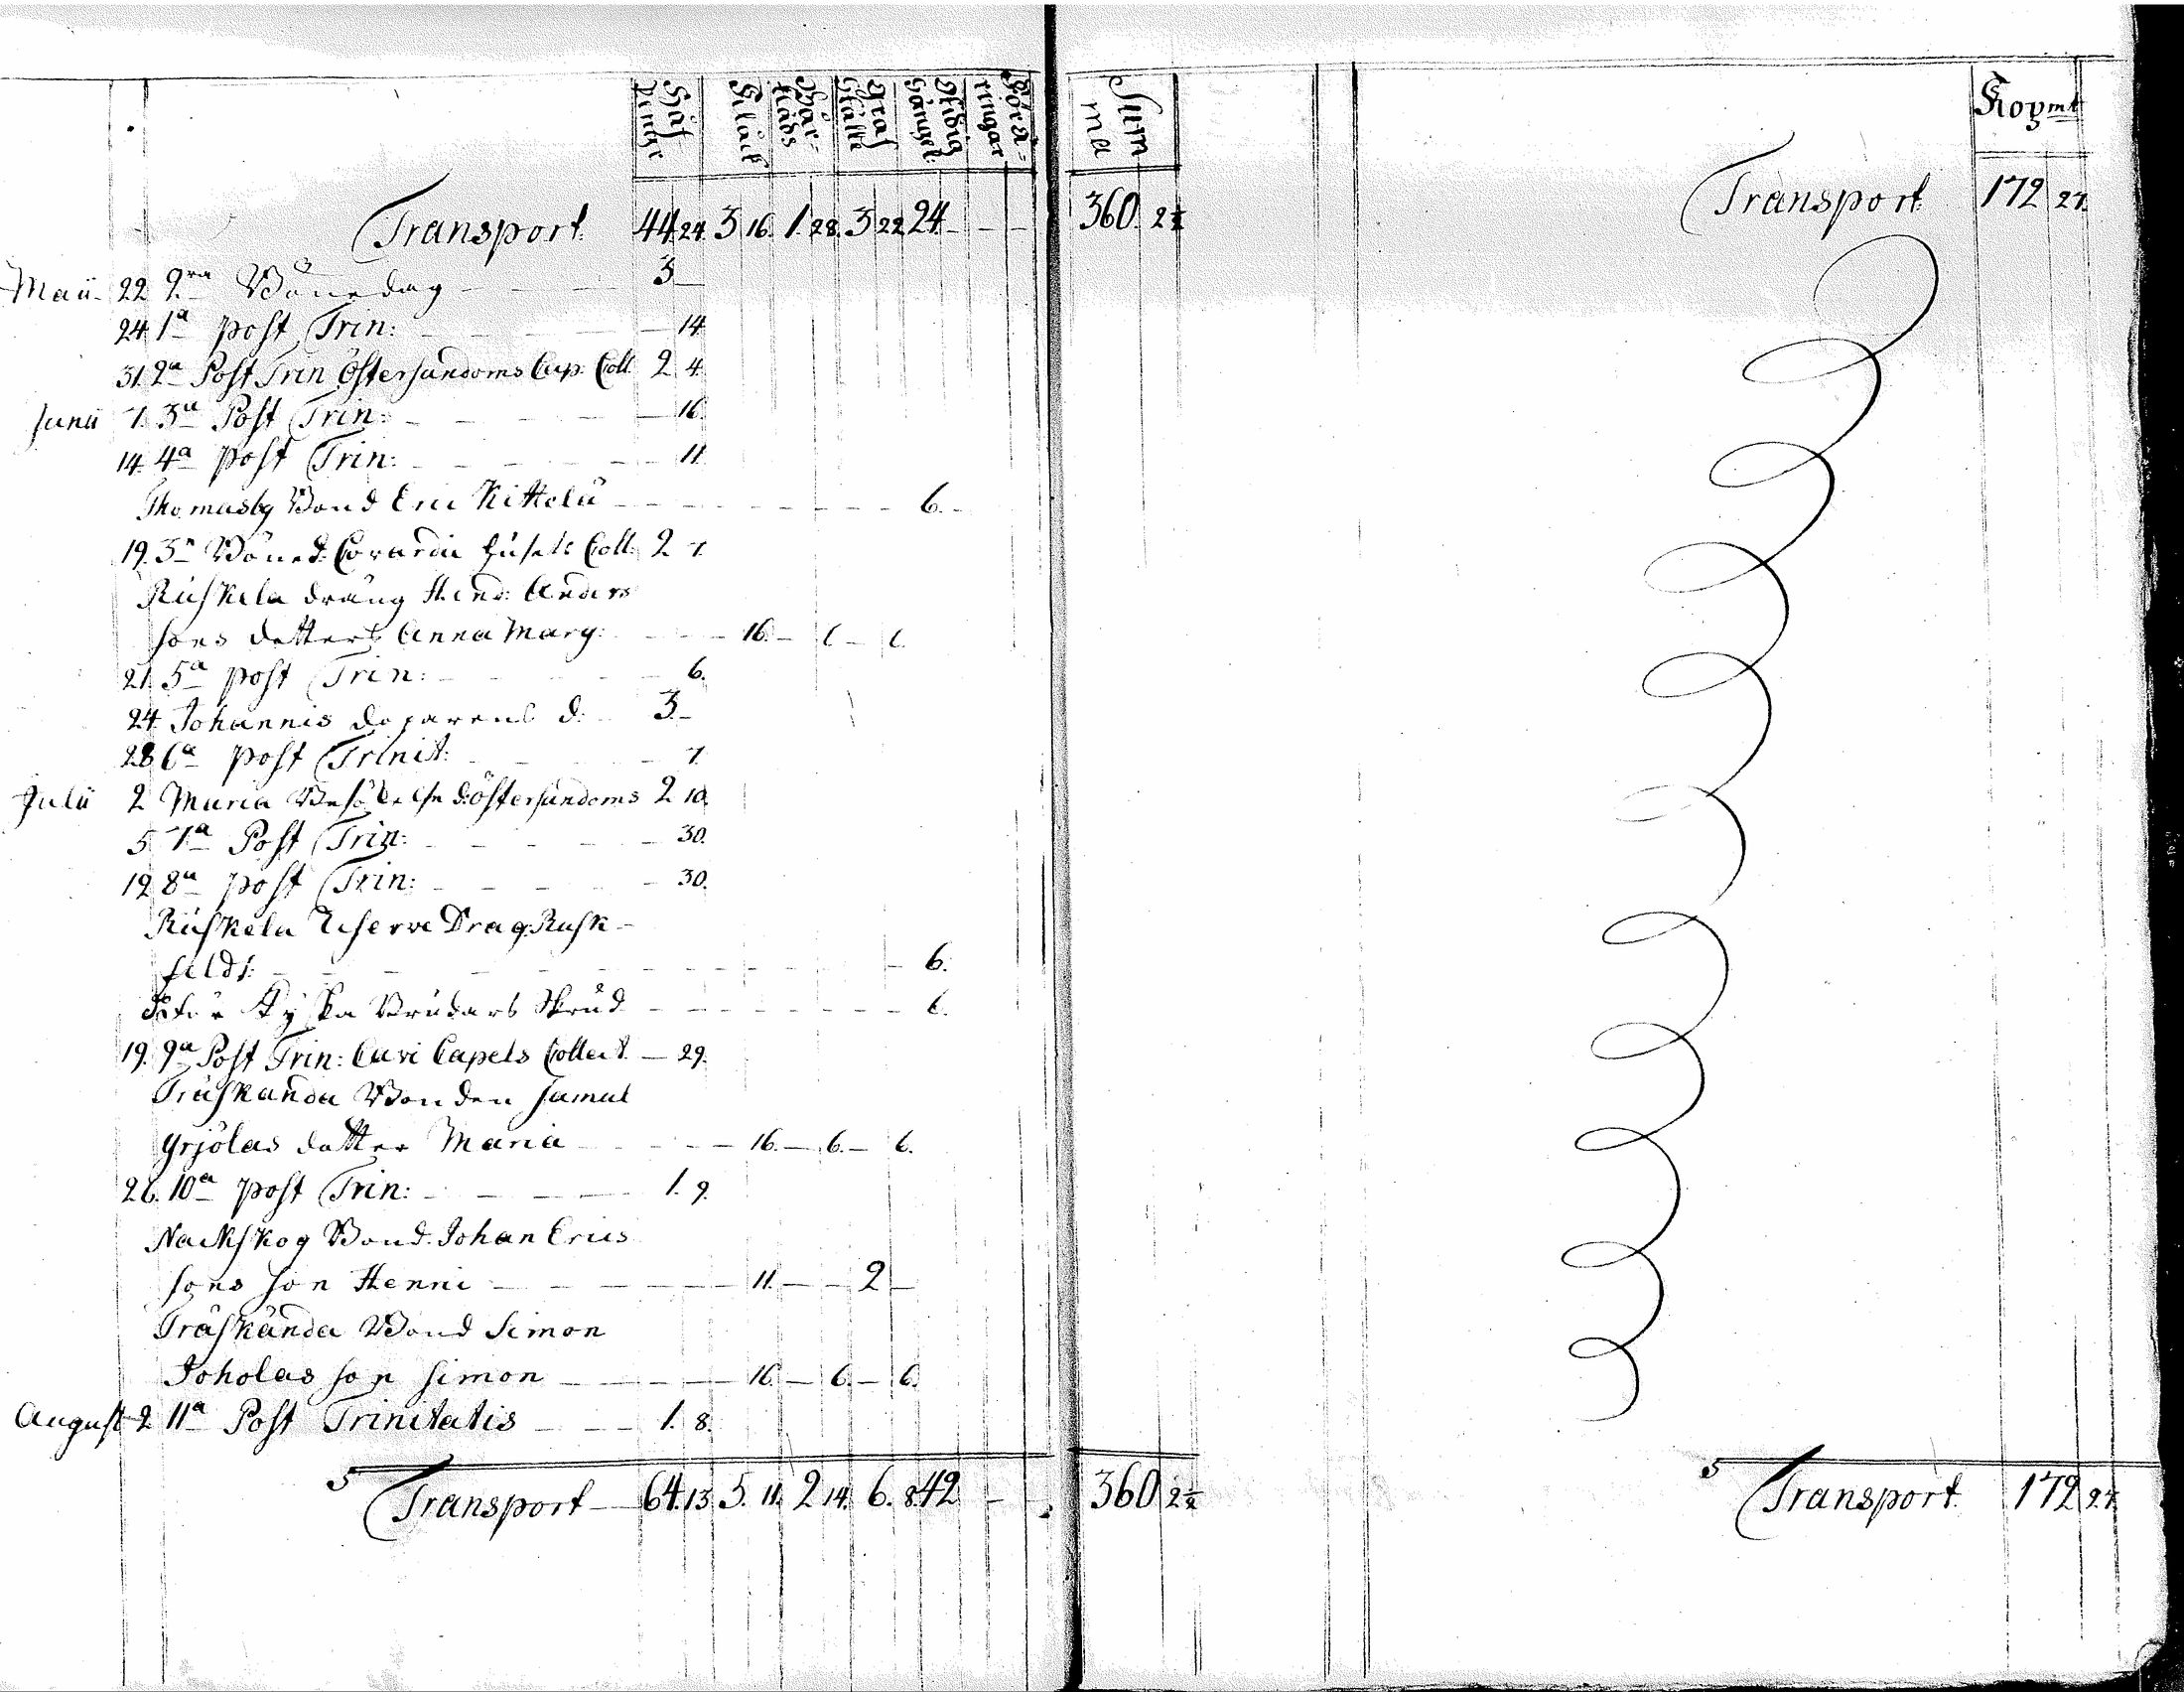 Håf Penngr Klåck Bår-kläds Graf Ställe Städig Gångel: Föra=ringar Sum ma Kop mt
Transport 44 24. 3 16. 1. 28. 3 22 24. - - - 360. 2½ Transport 172 27.
Maii 22 2ra Bönedag 3 -
24. 1a post Trin: 14
31. 2a Post Trin Östersundoms Cap: Coll. 2 4.
Junii 7. 3a Post Trin: 16.
14. 4a post Trin: 11
Thomasby Bond Eric Kittelä 6.
19. 3a Böned: Coll: 2 7.
Ruskela dräng Hend: Anders
sons dotters Anna Marg: 16. 6 6.
21. 5a post Trin: 6.
24. Johannis d: 3 -
28 6a post Trinit: 7.
Julii 2 Maria Besökelse d: Östersundoms 2 10.
5 7a Post Trin: 30.
12 8a post Trin: 30.
Ruskela Reserve Drag. Rusk-
feldt: 6.
Brudars Skrud 6.
19. 9a Post Trin: Capels Collect. 29.
Träskanda Bonden Samul
Grjölas dotter Maria 16. 6. 6.
26. 10a post Trin: 1. 9.
Nackskog Bond. Johan Erics
sons son Henric 11. 2
Träskända Bond Simon
Joholas son Simon 16. 6. 6.
August 2 11a Post Trinitatis 1. 8.
Transport 64. 13. 5. 11. 2 14. 6. 8. 42 - - 360 2½ Transport 172 27.